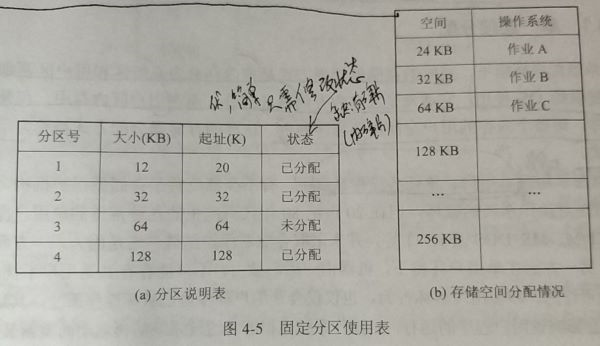 空间 操作系统
24 KB 作业 A
32 KB 作业 B
64 KB 作业 C
128 KB
… …
256 KB
(b) 存储空间分配情况
优,简单 只需修改状态
缺
(内碎片)
分区号 大小(KB) 起址(K) 状态
1 12 20 已分配
2 32 32 已分配
3 64 64 未分配
4 128 128 已分配
(a) 分区说明表
图 4-5 固定分区使用表